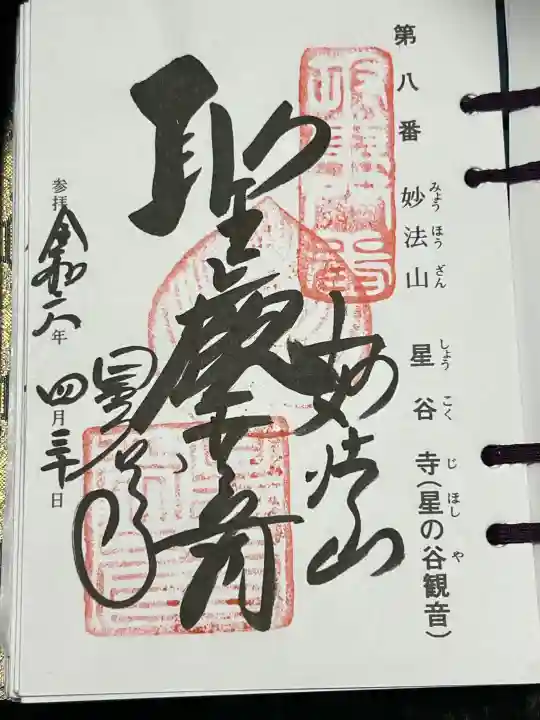 第八番 妙法山 星谷寺(星の谷観音)
みょう ほう ざん しょう こく じ ほし や
妙法山
聖観世音
星谷寺
参拝 令和六年 四月三十日